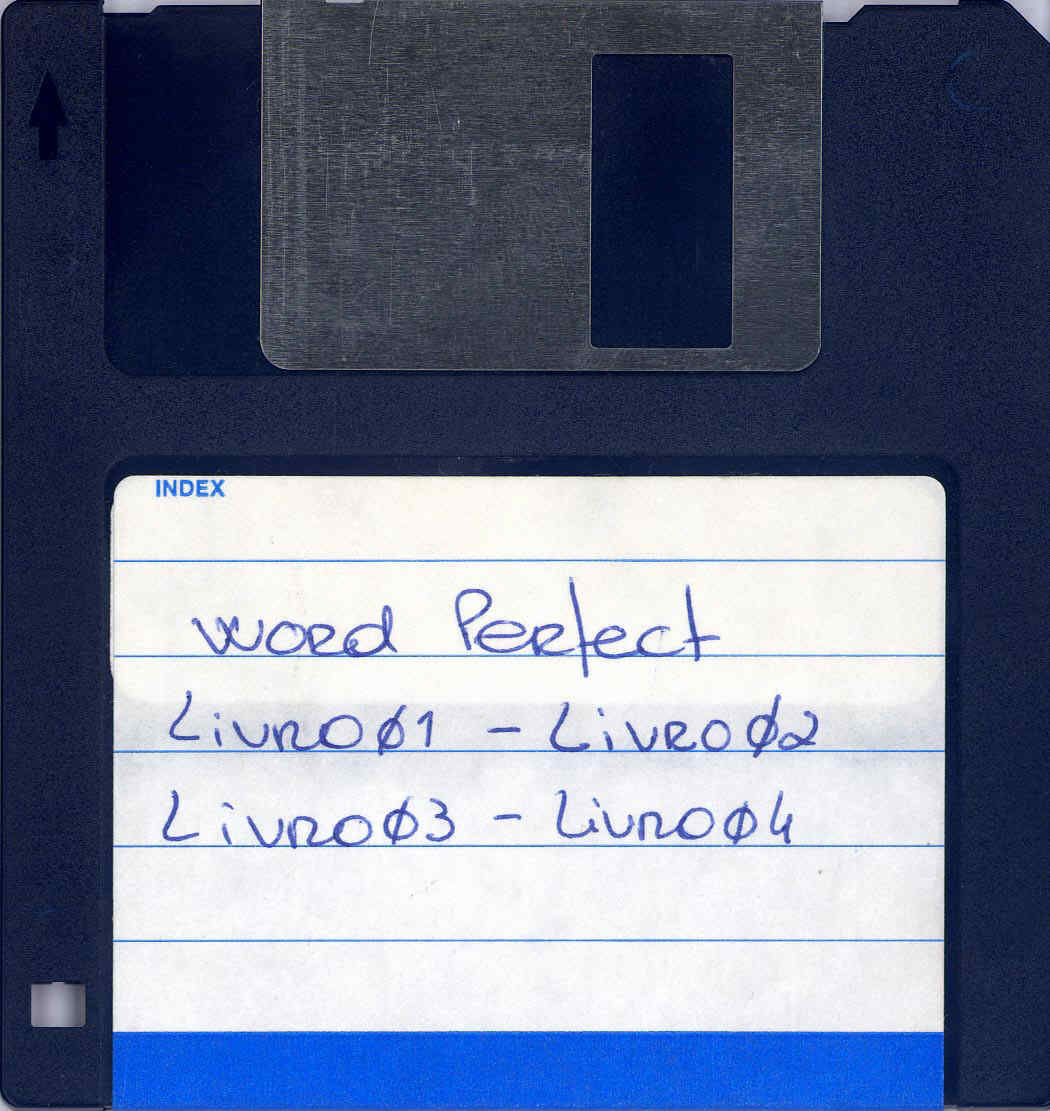 INDEX
Word Perfect
Livro01 - Livro02
Livro03 - Livro04